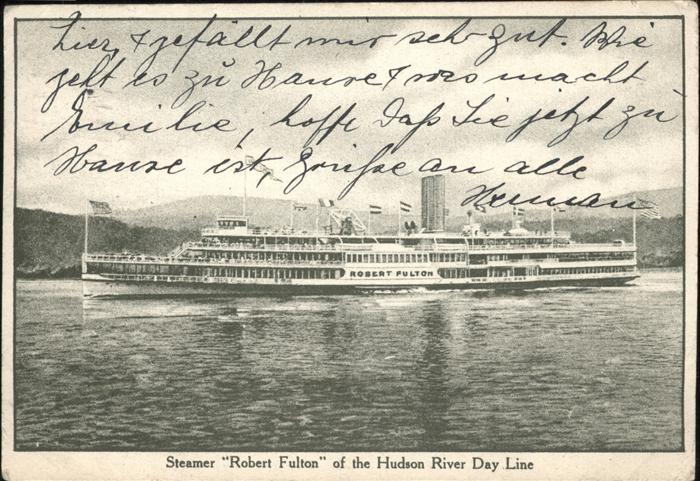 hier, & gefällt mir sehr gut. Wie
geht es zu Hause & was macht
Emilie, hoffe daß Sie jetzt zu
Hause ist, Grüße an alle
Herman
ROBERT FULTON
Steamer "Robert Fulton" of the Hudson River Day Line